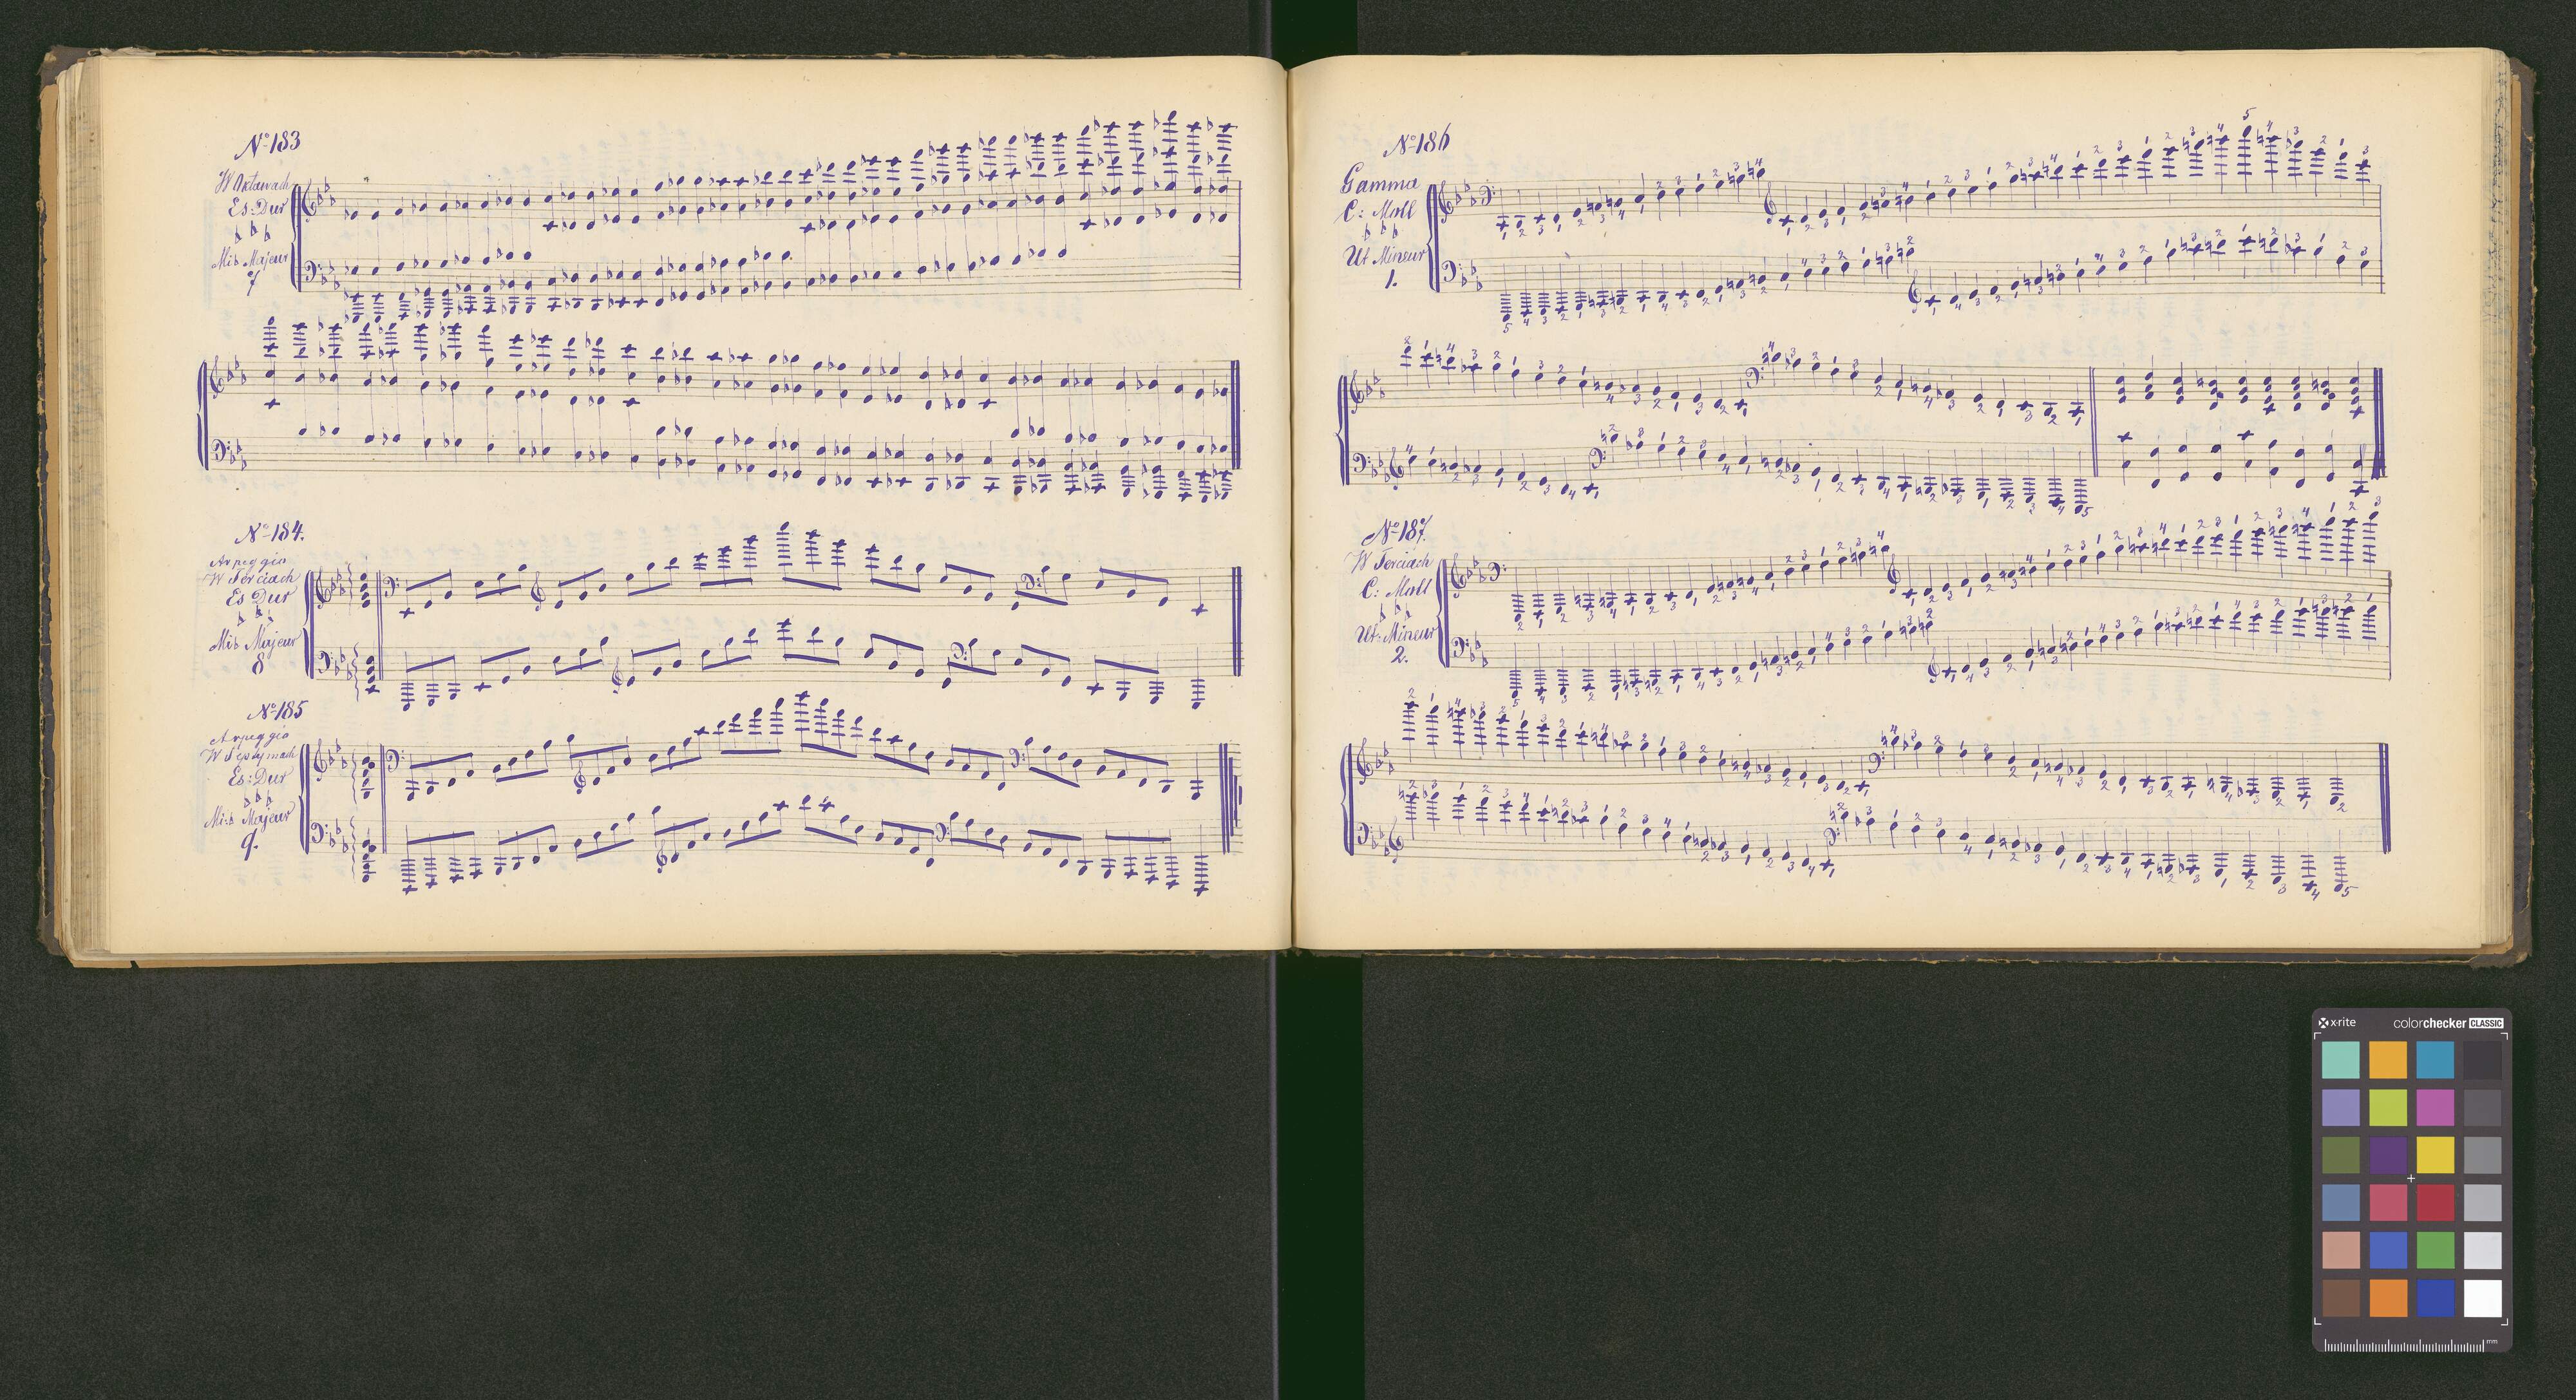 No 183
W Oktawach
Es: Dur
b b b
Mi b Majeur
7
No 184.
Arpeggio
W Terciach
Es Dur
b b b
Mi b Majeur
8
No 185
Arpeggio
W Septymach
Es: Dur
b b b
Mi: b Majeur
9.
No 186
Gamma
C: Moll
b b b
Ut Mineur
1.
No 187.
W Terciach
C: Moll
b b b
Ut: Mineur
2.
x-rite
colorchecker CLASSIC
mm